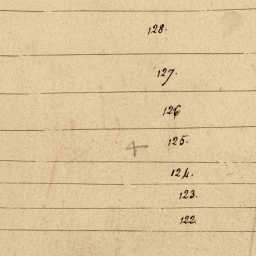 128.
127.
126
125.
124.
123.
122.